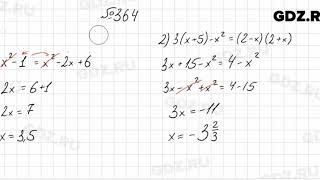 №364
GDZ.RU
x² - 1 = x² - 2x + 6
2x = 6+1
2x = 7
x = 3,5
2) 3(x+5) - x² = (2-x)(2+x)
3x + 15 - x² = 4 - x²
3x - x² + x² = 4 - 15
3x = -11
x = -3 2/3